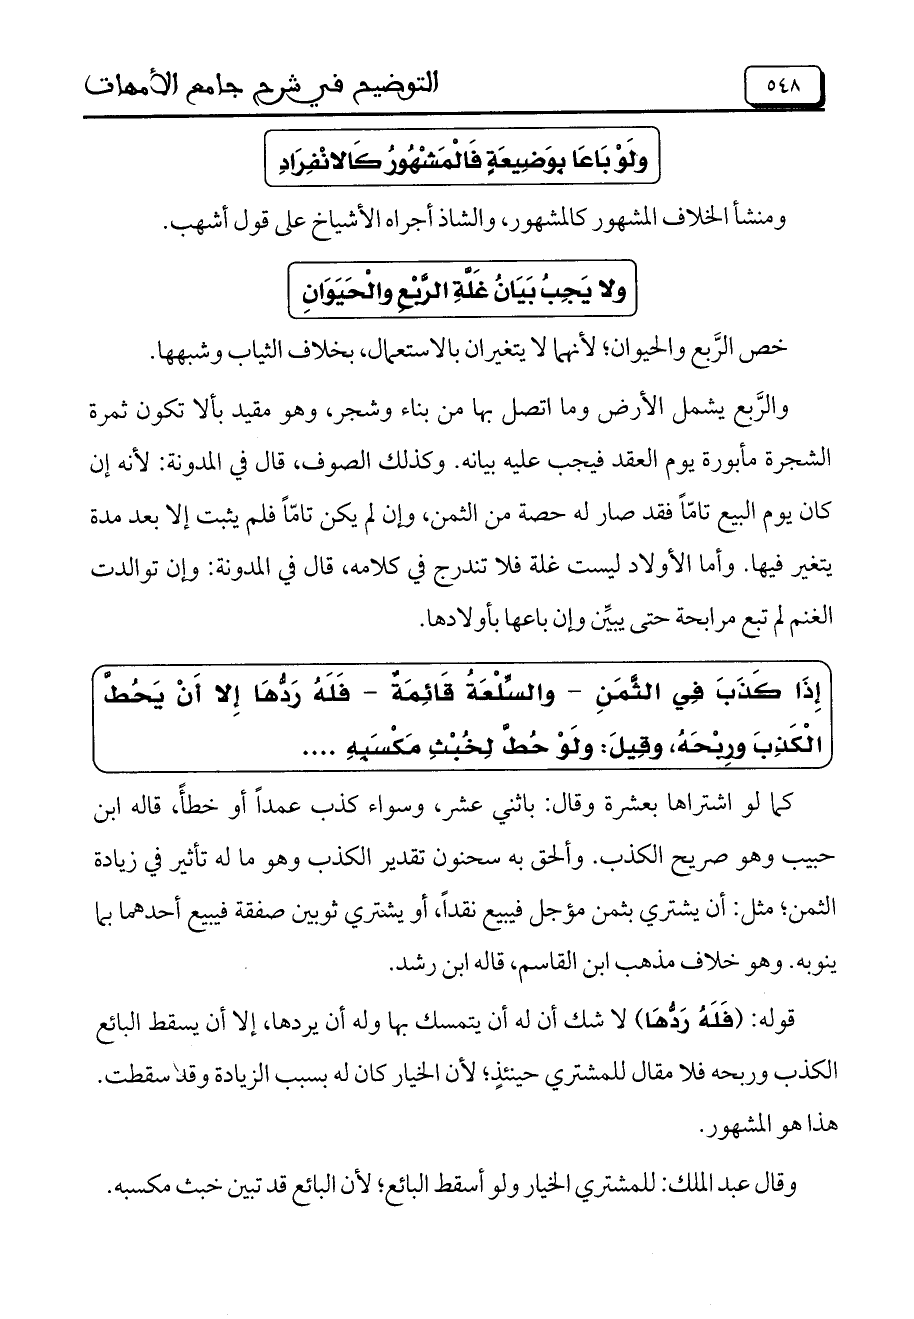 ٥٤٨
التوضيح في شرح جامع الأمهات
ولَوْ بَاعَا بِوَضِيعَةٍ فَالْمَشْهُورُ كَالانْفِرَادِ
ومنشأ الخلاف المشهور كالمشهور، والشاذ أجراه الأشياخ على قول أشهب.
ولا يَجِبُ بَيَانُ غَلَّةِ الرَّبْعِ والْحَيَوَانِ
خص الرَّبع والحيوان؛ لأنهما لا يتغيران بالاستعمال، بخلاف الثياب وشبهها.
والرَّبع يشمل الأرض وما اتصل بها من بناء وشجر، وهو مقيد بألا تكون ثمرة
الشجرة مأبورة يوم العقد فيجب عليه بيانه. وكذلك الصوف، قال في المدونة: لأنه إن
كان يوم البيع تامّاً فقد صار له حصة من الثمن، وإن لم يكن تامّاً فلم يثبت إلا بعد مدة
يتغير فيها. وأما الأولاد ليست غلة فلا تندرج في كلامه، قال في المدونة: وإن توالدت
الغنم لم تبع مرابحة حتى يبيِّن وإن باعها بأولادها.
إِذَا كَذَبَ فِي الثَّمَنِ - والسِّلْعَةُ قَائِمَةٌ - فَلَهُ رَدُّهَا إِلا أَنْ يَحُطَّ
الْكَذِبَ ورِبْحَهُ، وقِيلَ: ولَوْ حُطَّ لِخُبْثِ مَكْسَبِهِ ....
كما لو اشتراها بعشرة وقال: باثني عشر، وسواء كذب عمداً أو خطأً، قاله ابن
حبيب وهو صريح الكذب. وألحق به سحنون تقدير الكذب وهو ما له تأثير في زيادة
الثمن؛ مثل: أن يشتري بثمن مؤجل فيبيع نقداً، أو يشتري ثوبين صفقة فيبيع أحدهما بما
ينوبه. وهو خلاف مذهب ابن القاسم، قاله ابن رشد.
قوله: (فَلَهُ رَدُّهَا) لا شك أن له أن يتمسك بها وله أن يردها، إلا أن يسقط البائع
الكذب وربحه فلا مقال للمشتري حينئذٍ؛ لأن الخيار كان له بسبب الزيادة وقد سقطت.
هذا هو المشهور.
وقال عبد الملك: للمشتري الخيار ولو أسقط البائع؛ لأن البائع قد تبين خبث مكسبه.